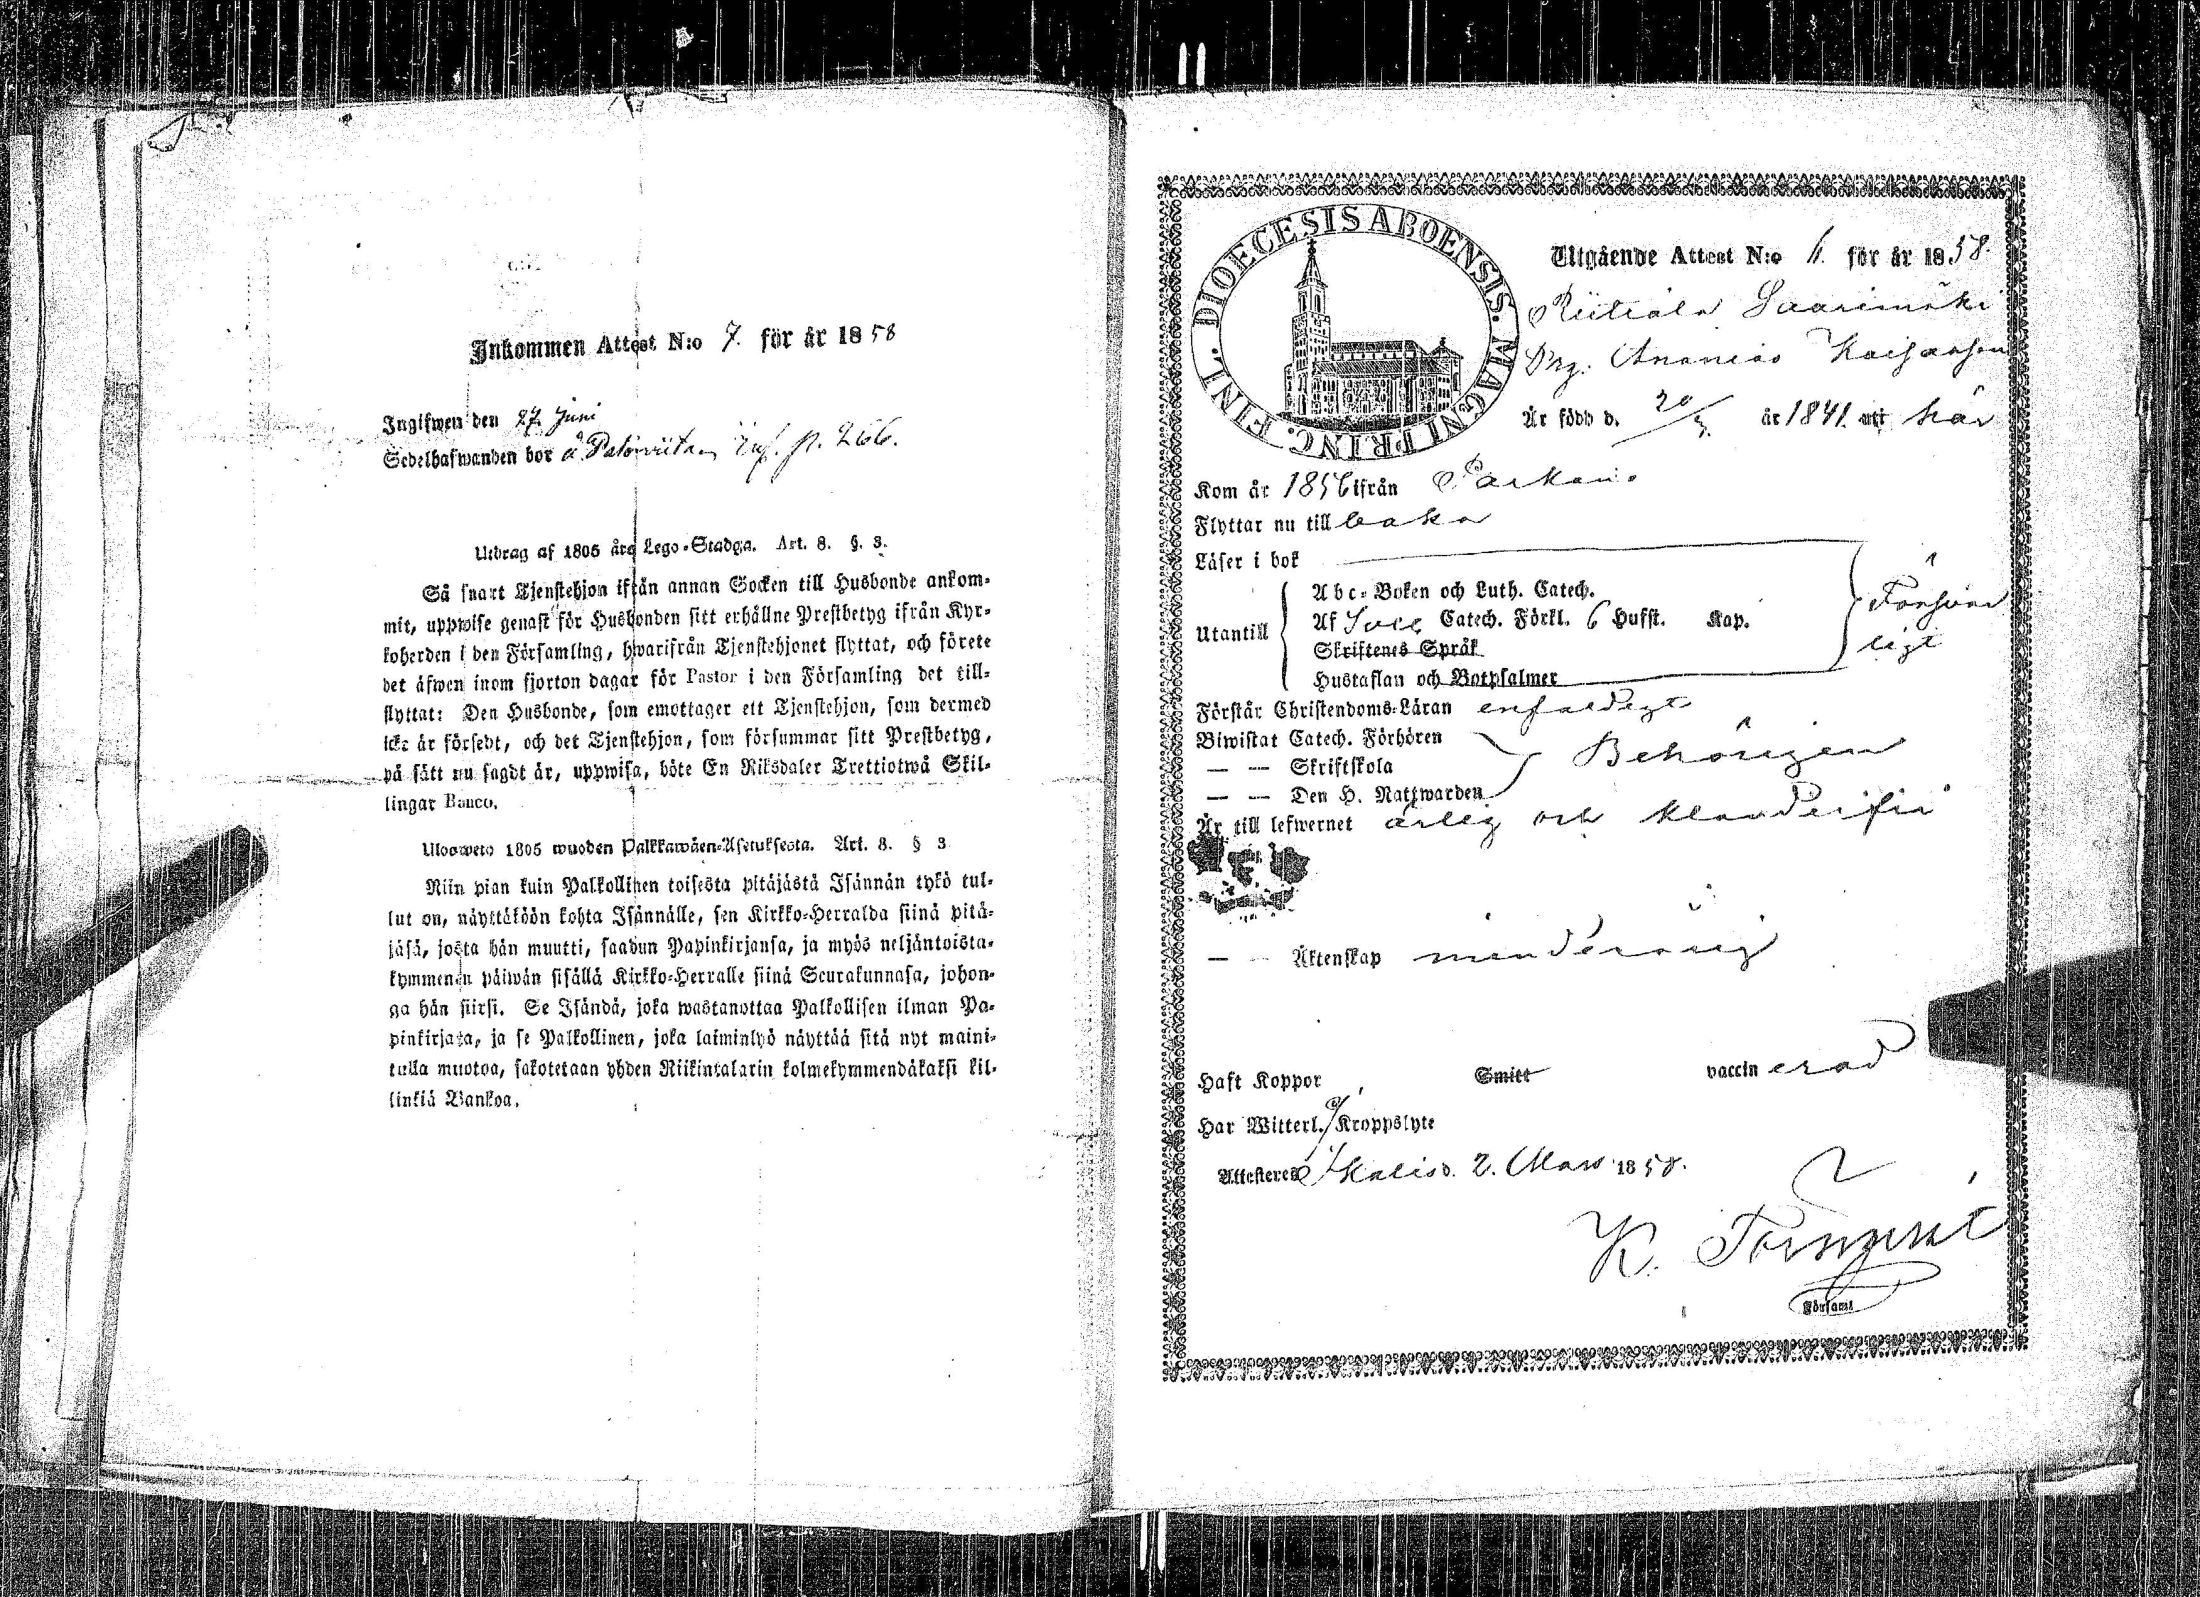 Inkommen Attest N:o 7. för år 1858
Ingifwen den 27 Juni
Sedelhafwanden bor å inf. p. 266.
Utdrag af 1805 års Lego-Stadga. Art. 8. §. 3.
Så snart Tjenstehjon ifrån annan Socken till Husbonde ankom-
mit, uppwise genast för Husbonden sitt erhållne Prestbetyg ifrån Kyr-
koherden i den Församling, hwarifrån Tjenstehjonet flyttat, och förete
det äfwen inom fjorton dagar för Pastor i den Församling det till-
flyttat: Den Husbonde, som emottager ett Tjenstehjon, som dermed
icke är försedt, och det Tjenstehjon, som försummar sitt Prestbetyg,
på sätt nu sagdt är, uppwisa, böte En Riksdaler Trettiotwå Skil-
lingar Banco.
Ulosweto 1805 wuoden Palkkawäen-Asetuksesta. Art. 8. § 3
Niin pian kuin Palkollinen toisesta pitäjästä Isännän tykö tul-
lut on, näyttäköön kohta Isännälle, sen Kirkko-Herralda siinä pitä-
jäsä, josta hän muutti, saadun Papinkirjansa, ja myös neljäntoista-
kymmenen päiwän sisällä Kirkko-Herralle siinä Seurakunnasa, johon-
ga hän siirsi. Se Isändä, joka wastanottaa Palkollisen ilman Pa-
pinkirjata, ja se Palkollinen, joka laiminlyö näyttää sitä nyt maini-
tulla muotoa, sakotetaan yhden Riikintalarin kolmekymmendäkaksi kil-
linkiä Bankoa.
DIOECESIS ABOENSIS. MAGNI PRINC. FINL.
Utgående Attest N:o 6. för år 1858.
Riitiala Saarimäki
Drg. Ananias
Är född d. 20/3. år 1841. uti här
Kom år 1856 ifrån Parkano
Flyttar nu till baka
Läser i bok
Abc-Boken och Luth. Catech.
Utantill Af Sveb Catech. Förkl. 6 Hufst. Kap. Försvar
Skriftenes Språk ligt
Hustaflan och Botpsalmer
Förstår Christendoms-Läran enfaldigt
Biwistat Catech. Förhören
— — Skriftskola Behörigen
— — Den H. Nattwarden
Är till lefwernet ärlig och klanderfri
— — Äktenskap minderårig
Haft Koppor Smitt vaccin erad
Har Witterl. ej Kroppslyte
Attesteres Ikalis d. 2. Mars 1858.
K. Törnqvist
Församl